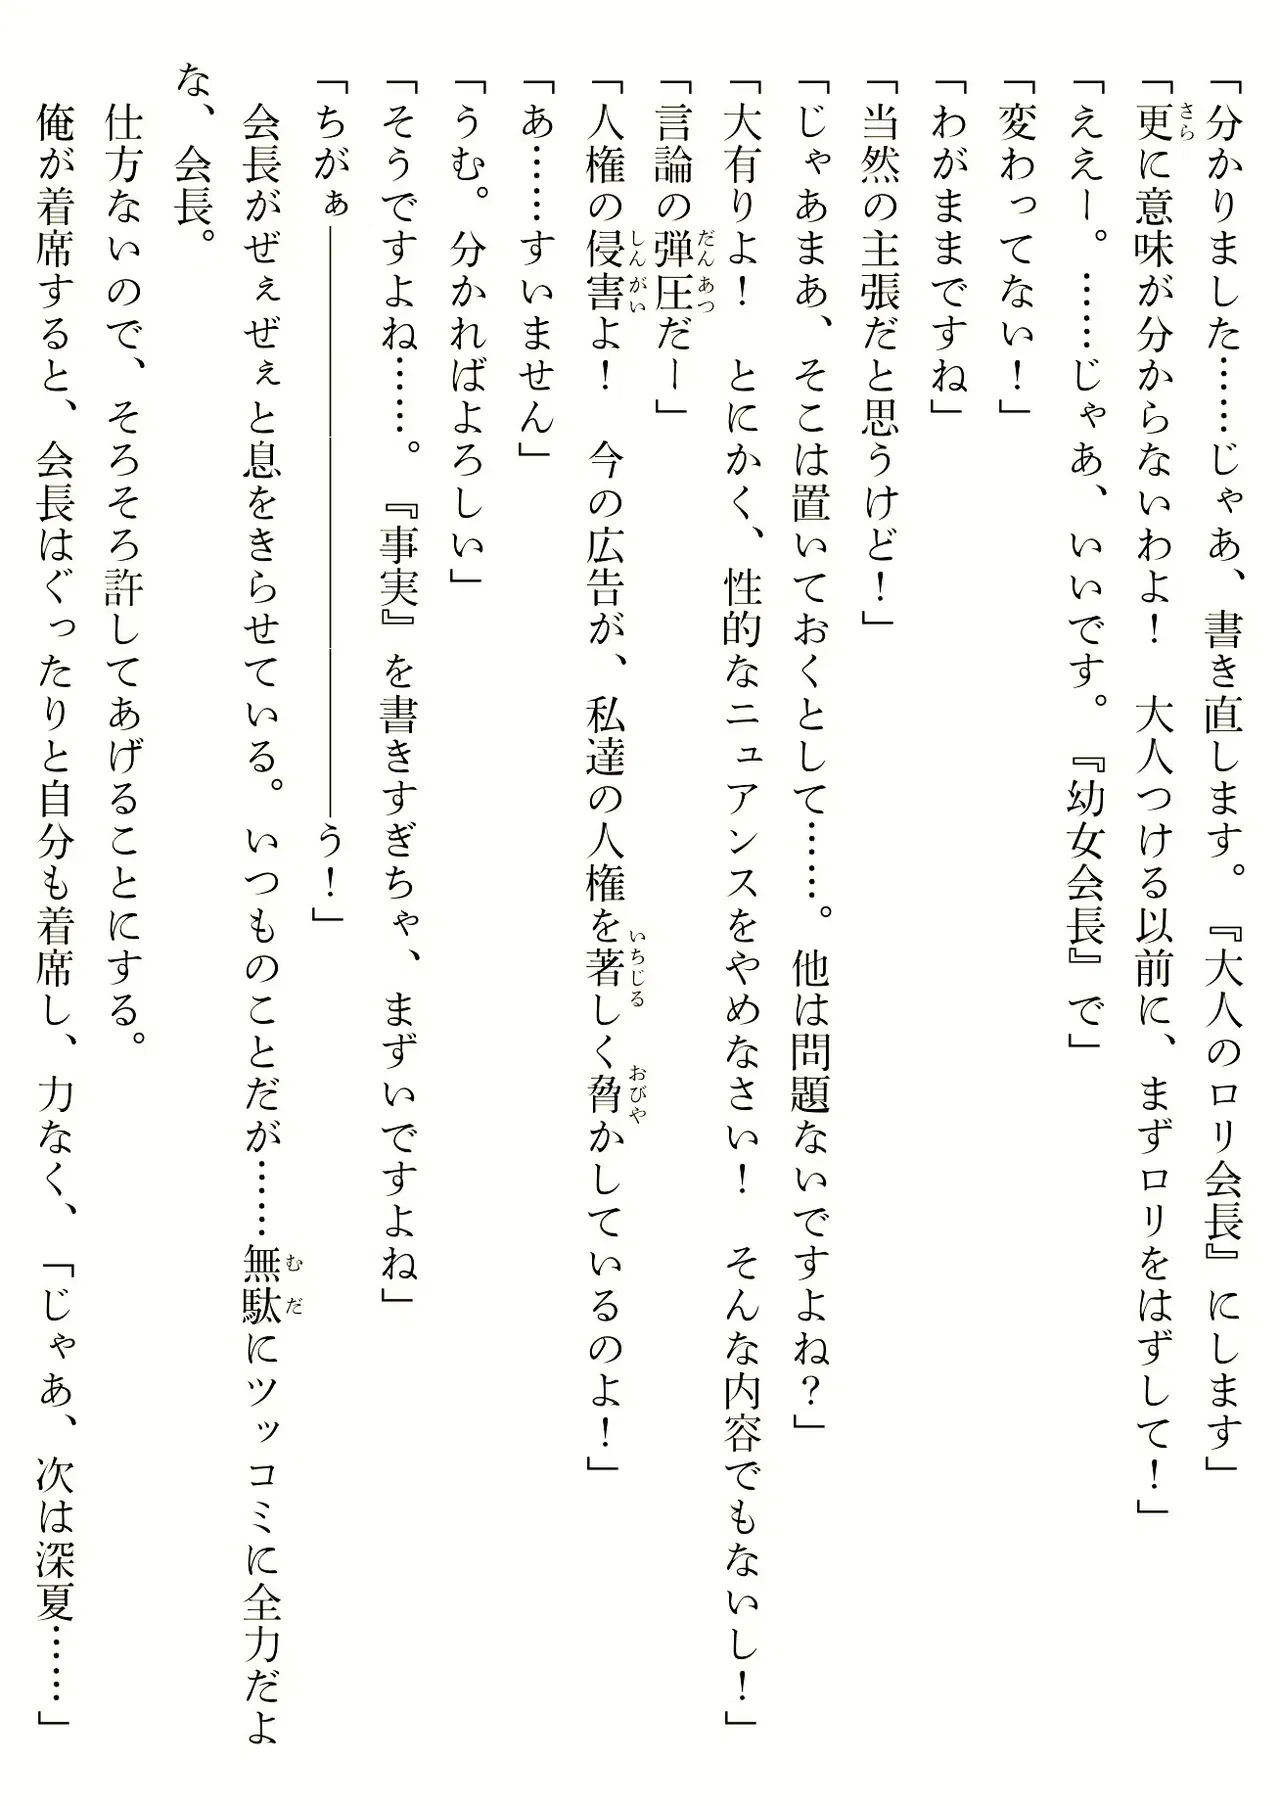 「分かりました……じゃあ、書き直します。『大人のロリ会長』にします」
「更に意味が分からないわよ！　大人つける以前に、まずロリをはずして！」
「ええー。……じゃあ、いいです。『幼女会長』で」
「変わってない！」
「わがままですね」
「当然の主張だと思うけど！」
「じゃあまあ、そこは置いておくとして……。他は問題ないですよね？」
「大有りよ！　とにかく、性的なニュアンスをやめなさい！　そんな内容でもないし！」
「言論の弾圧だー」
「人権の侵害よ！　今の広告が、私達の人権を著しく脅かしているのよ！」
「あ……すいません」
「うむ。分かればよろしい」
「そうですよね……。『事実』を書きすぎちゃ、まずいですよね」
「ちがぁ――――――――――――――う！」
　会長がぜぇぜぇと息をきらせている。いつものことだが……無駄にツッコミに全力だよ
な、会長。
　仕方ないので、そろそろ許してあげることにする。
　俺が着席すると、会長はぐったりと自分も着席し、力なく、「じゃあ、次は深夏……」